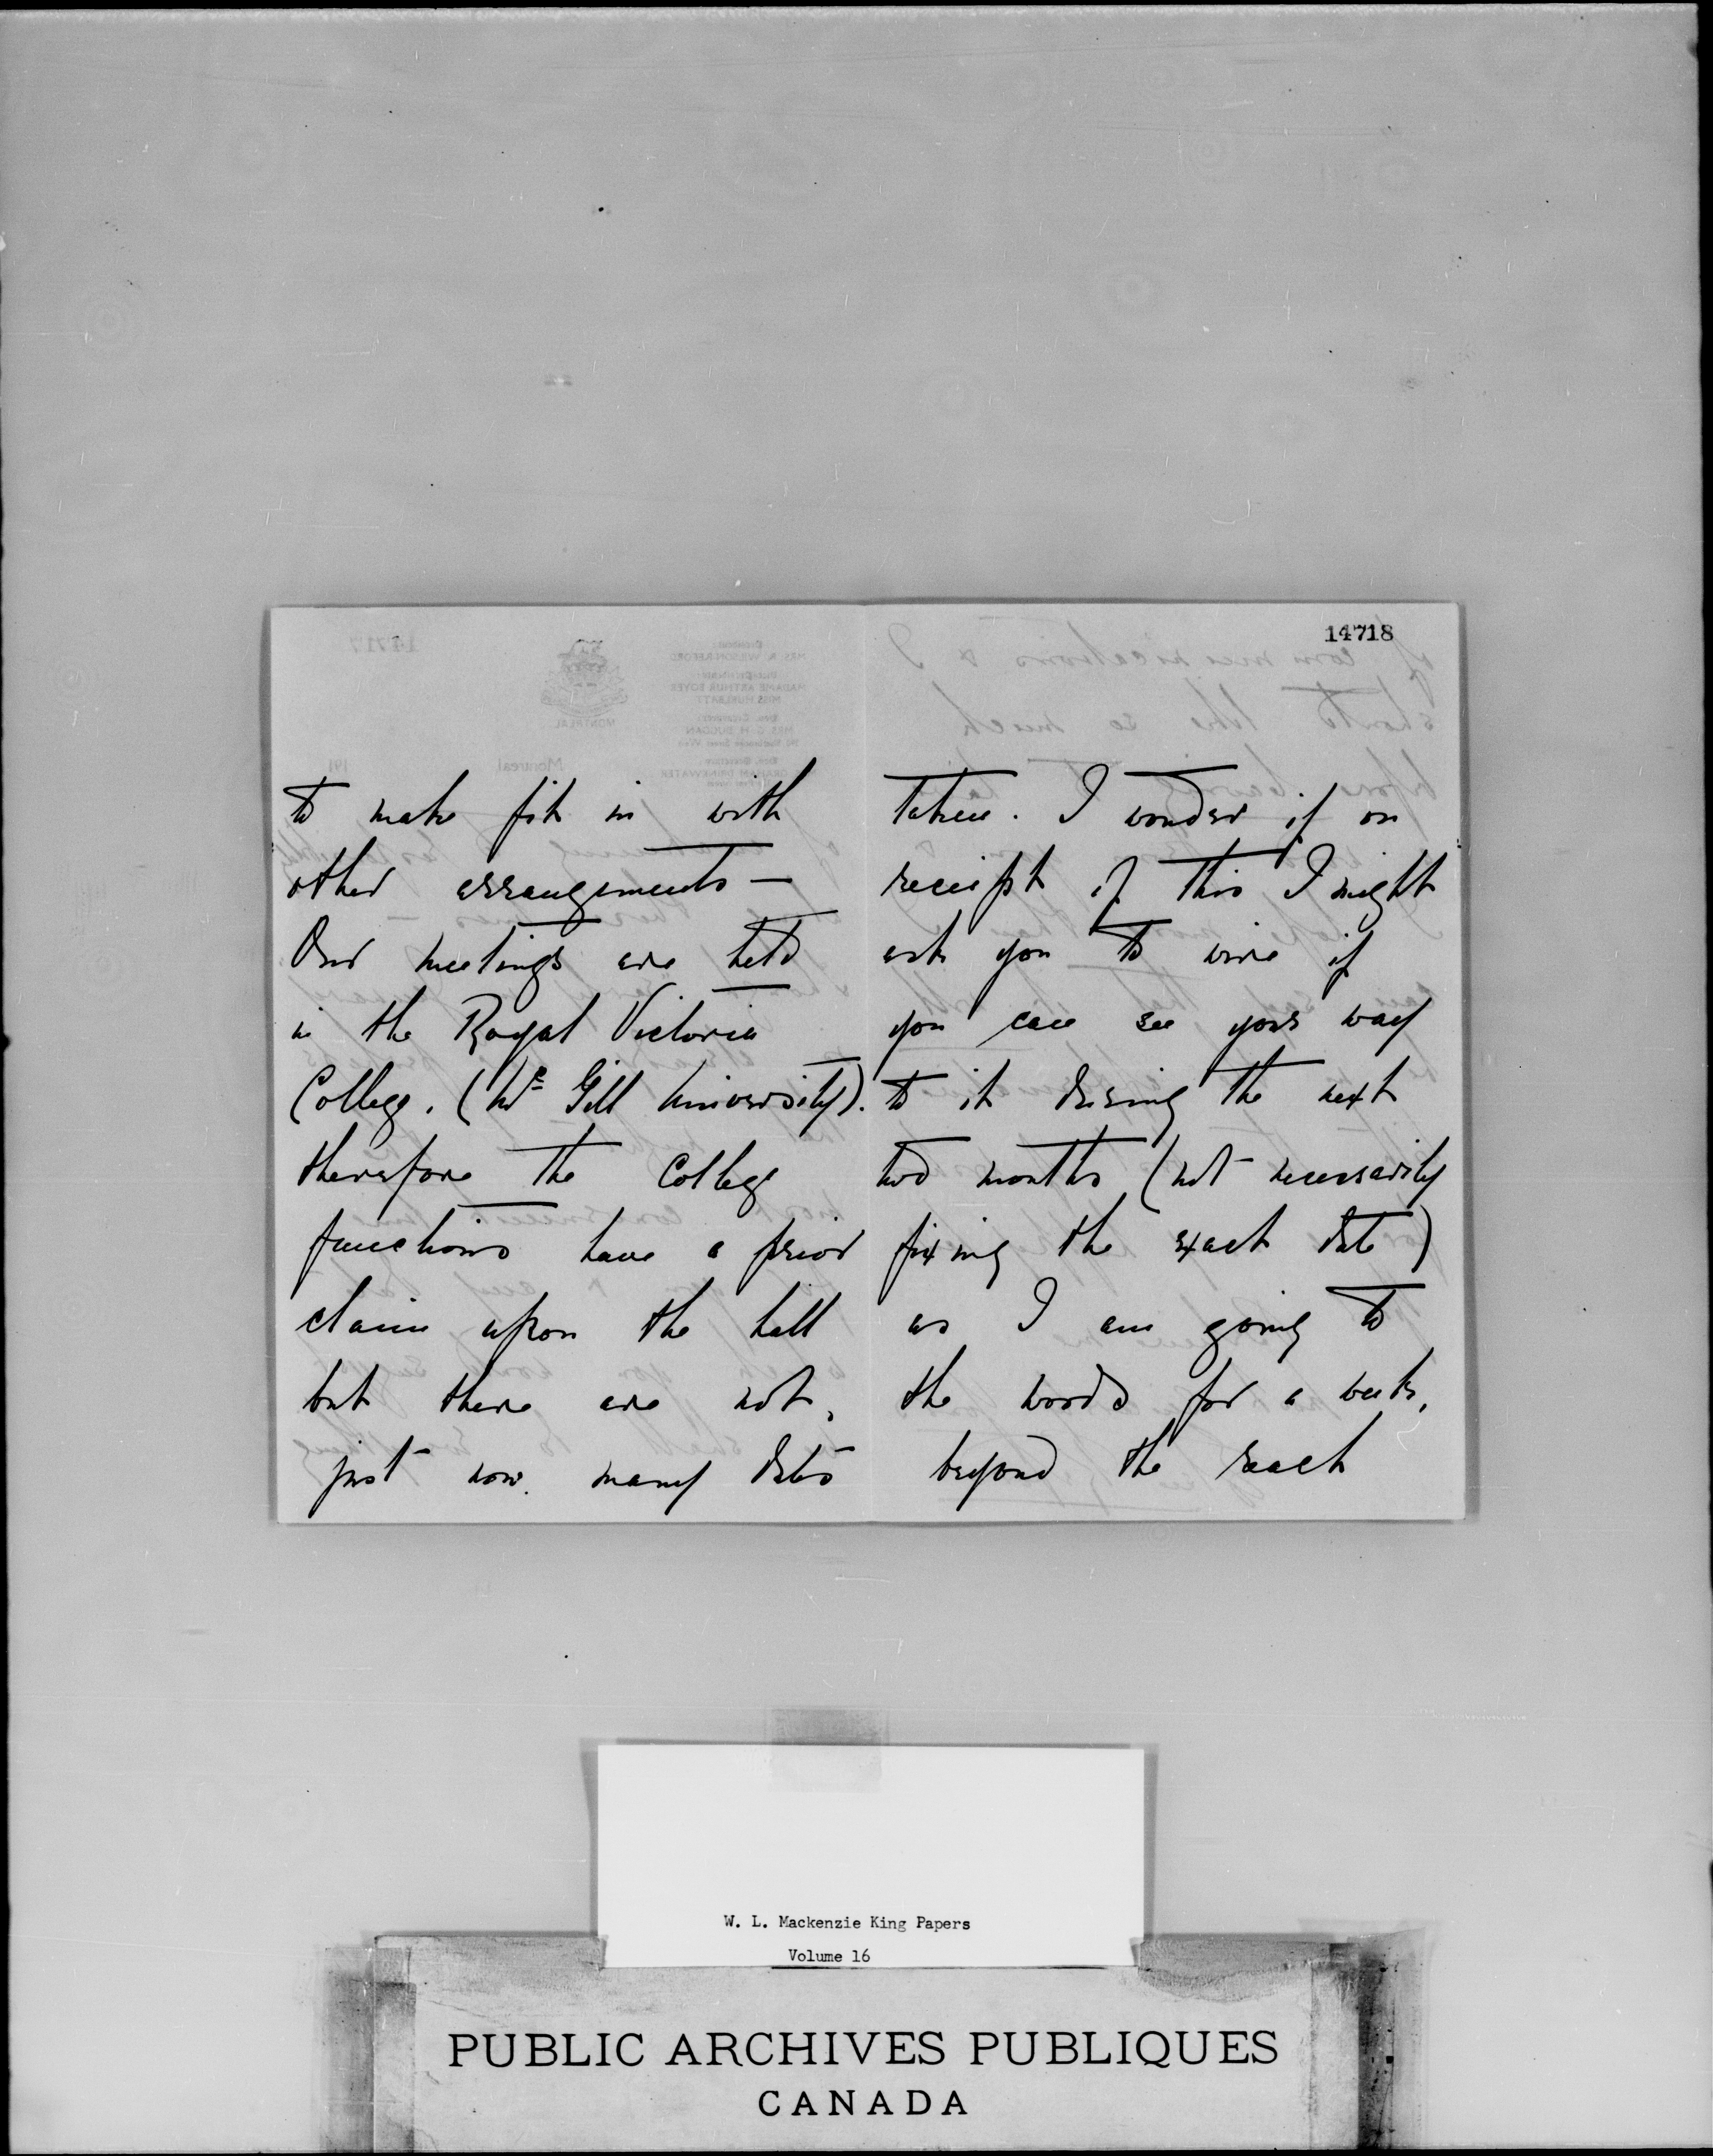 14718
to make fit in with
other arrangements —
Our meetings are held
in the Royal Victoria
College. (Mc Gill University).
therefore the College
functions have a prior
claim upon the hall
but there are not,
just now. many dates
taken. I wonder if on
receipt of this I might
ask you to wire if
you can see your way
to it during the next
two months (not necessarily
fixing the exact date)
as I am going to
the woods for a week,
beyond the reach
W. L. Mackenzie King Papers
Volume 16
PUBLIC ARCHIVES PUBLIQUES
CANADA